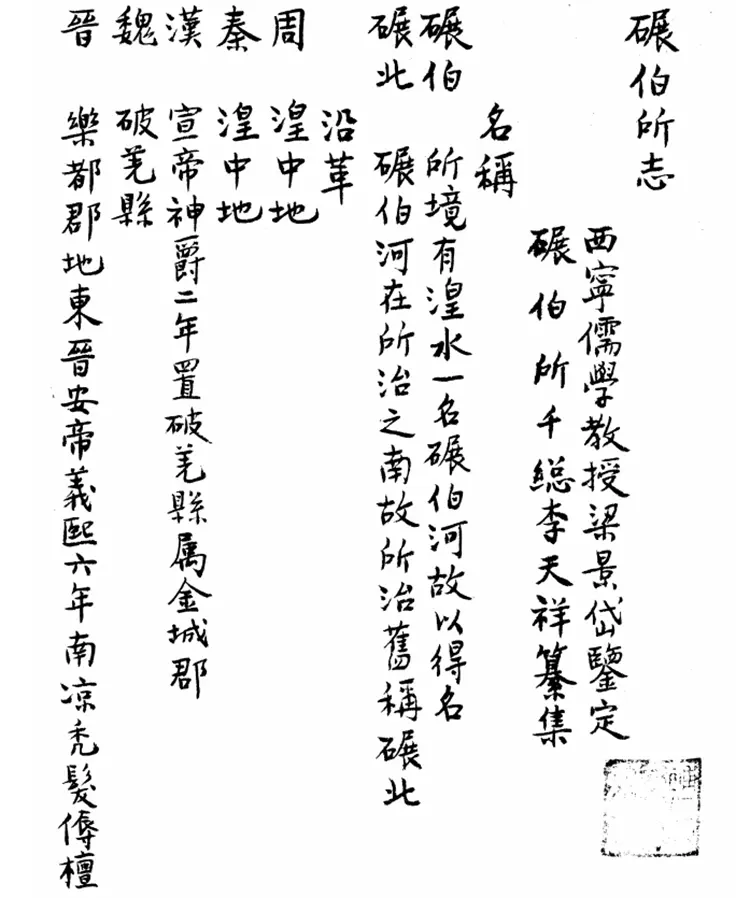 碾伯所志
西寧儒學教授梁景岱鑒定
碾伯所千総李天祥纂集
名稱
碾伯　所境有湟水一名碾伯河故以得名
碾北　碾伯河在所治之南故所治舊稱碾北
沿革
周　湟中地
秦　湟中地
漢　宣帝神爵二年置破羌縣属金城郡
魏　破羌縣
晉　樂都郡地東晉安帝義熙六年南凉秃髮傉檀